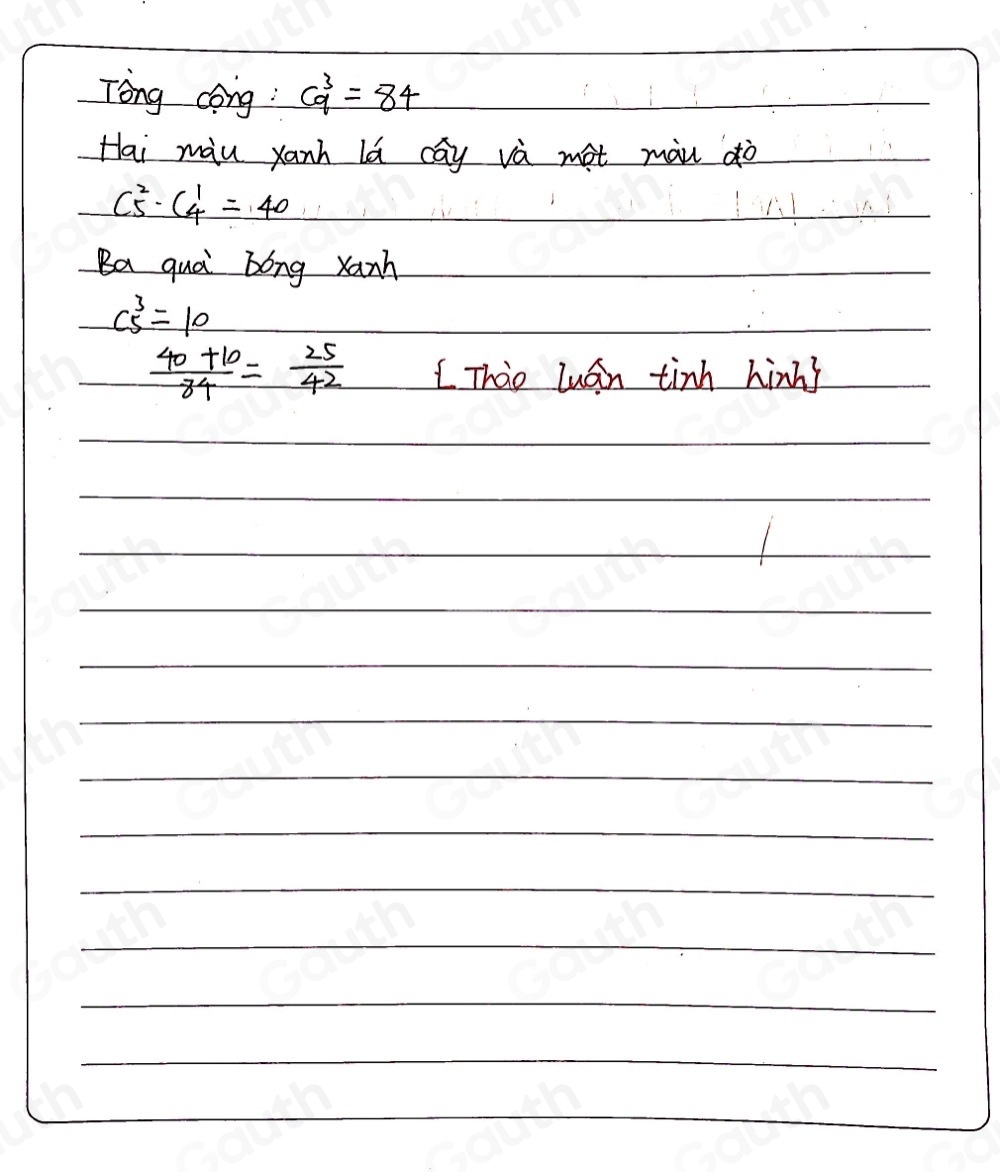 Tổng cộng: C₉³ = 84
Hai màu xanh lá cây và một màu đỏ
C₅² · C₄¹ = 40
Ba quả bóng xanh
C₅³ = 10
(40 + 10)/84 = 25/42 {Thảo luận tình hình}
Gauth